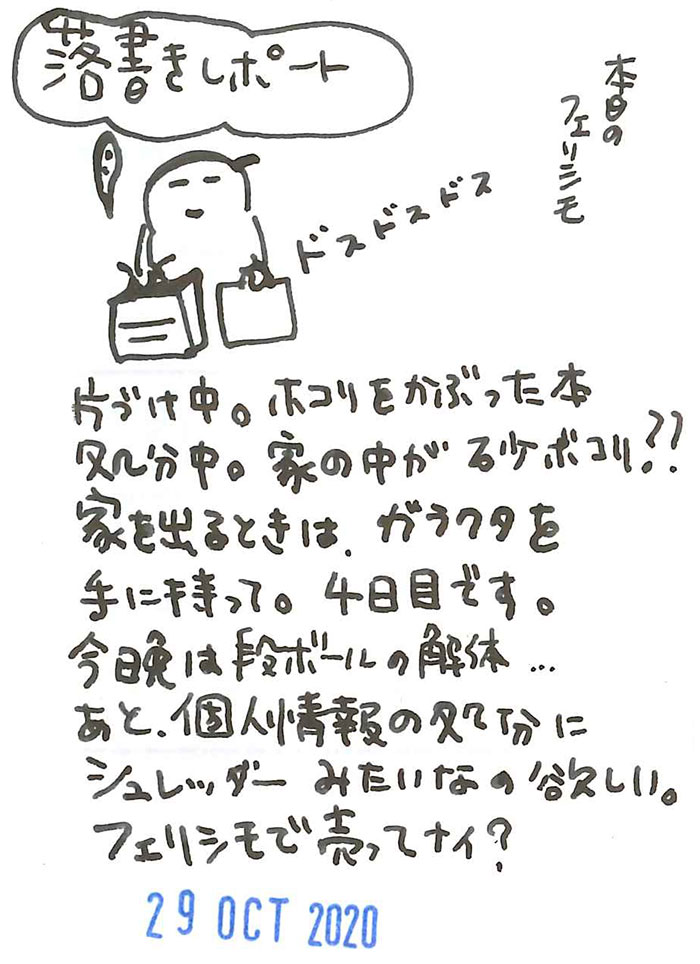 落書きレポート
本日の
フェリシモ
ドスドスドス
片づけ中。ホコリをかぶった本
処分中。家の中がるツボコリ??
家を出るときは、ガラクタを
手に持って。4日目です。
今日晩は段ボールの解体…
あと、個人情報の処分に
シュレッダーみたいなの欲しい。
フェリシモで売ってナイ?
29 OCT 2020